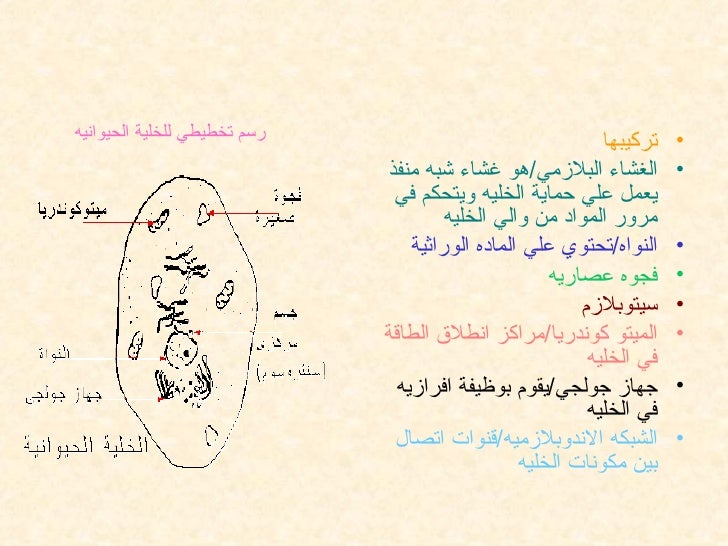 رسم تخطيطي للخلية الحيوانيه
• تركيبها
• الغشاء البلازمي/هو غشاء شبه منفذ
يعمل علي حماية الخليه ويتحكم في
مرور المواد من والي الخليه
• النواه/تحتوي علي الماده الوراثية
• فجوه عصاريه
• سيتوبلازم
• الميتو كوندريا/مراكز انطلاق الطاقة
في الخليه
• جهاز جولجي/يقوم بوظيفة افرازيه
في الخليه
• الشبكه الاندوبلازميه/قنوات اتصال
بين مكونات الخليه
فجوة
صغيرة
ميتوكوندريا
جسم
مركزى
(سنتروسوم)
النواة
جهاز جولجى
الخلية الحيوانية